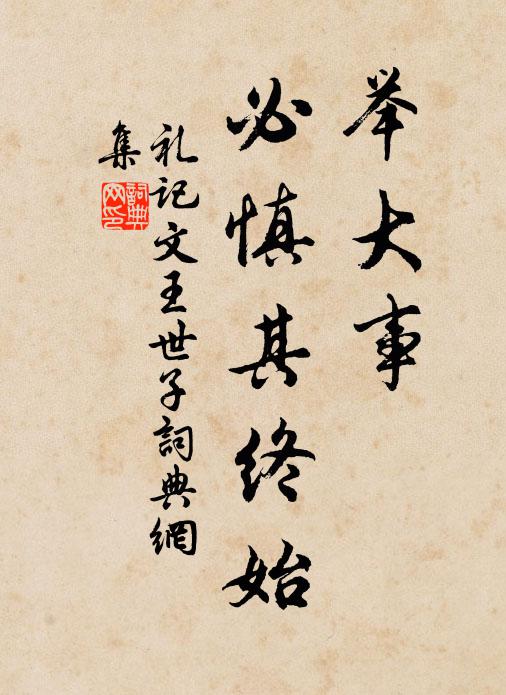 举大事
必慎其终始
礼记文王世子詞典網
集
詞典网印